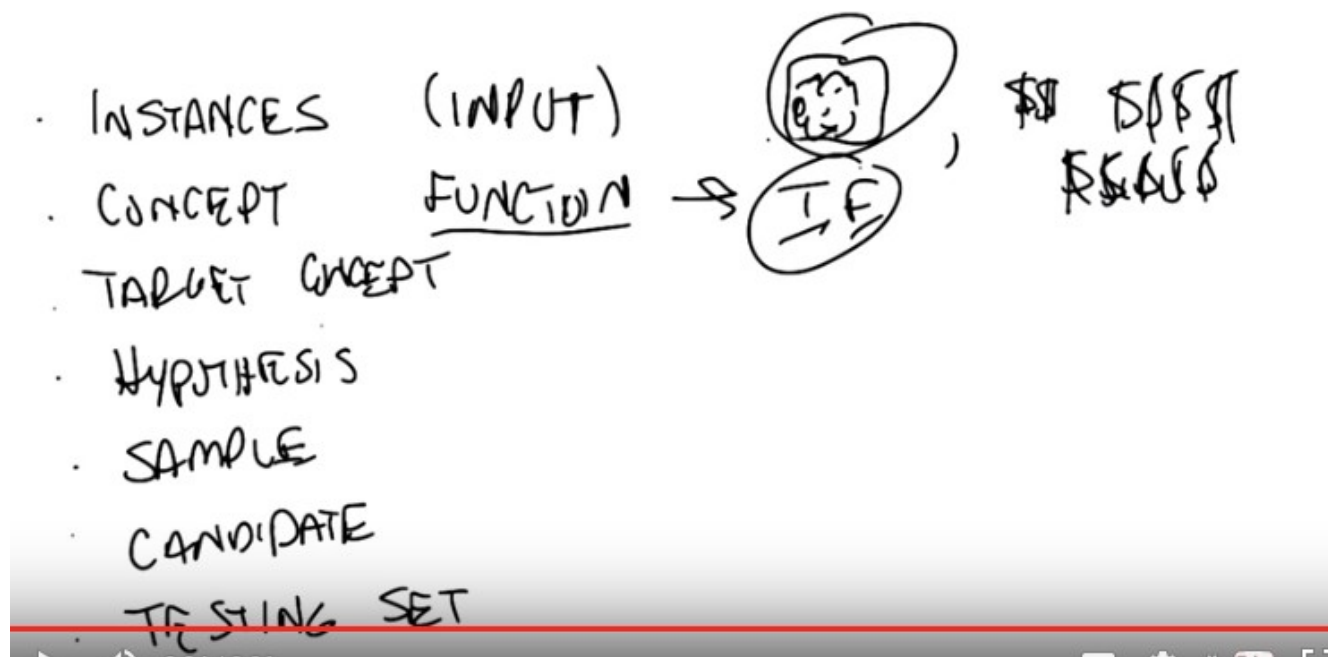 . INSTANCES (INPUT) $$ $$$$
$$$$$
. CONCEPT FUNCTION → T F
. TARGET CONCEPT
. HYPOTHESIS
. SAMPLE
. CANDIDATE
. TESTING SET